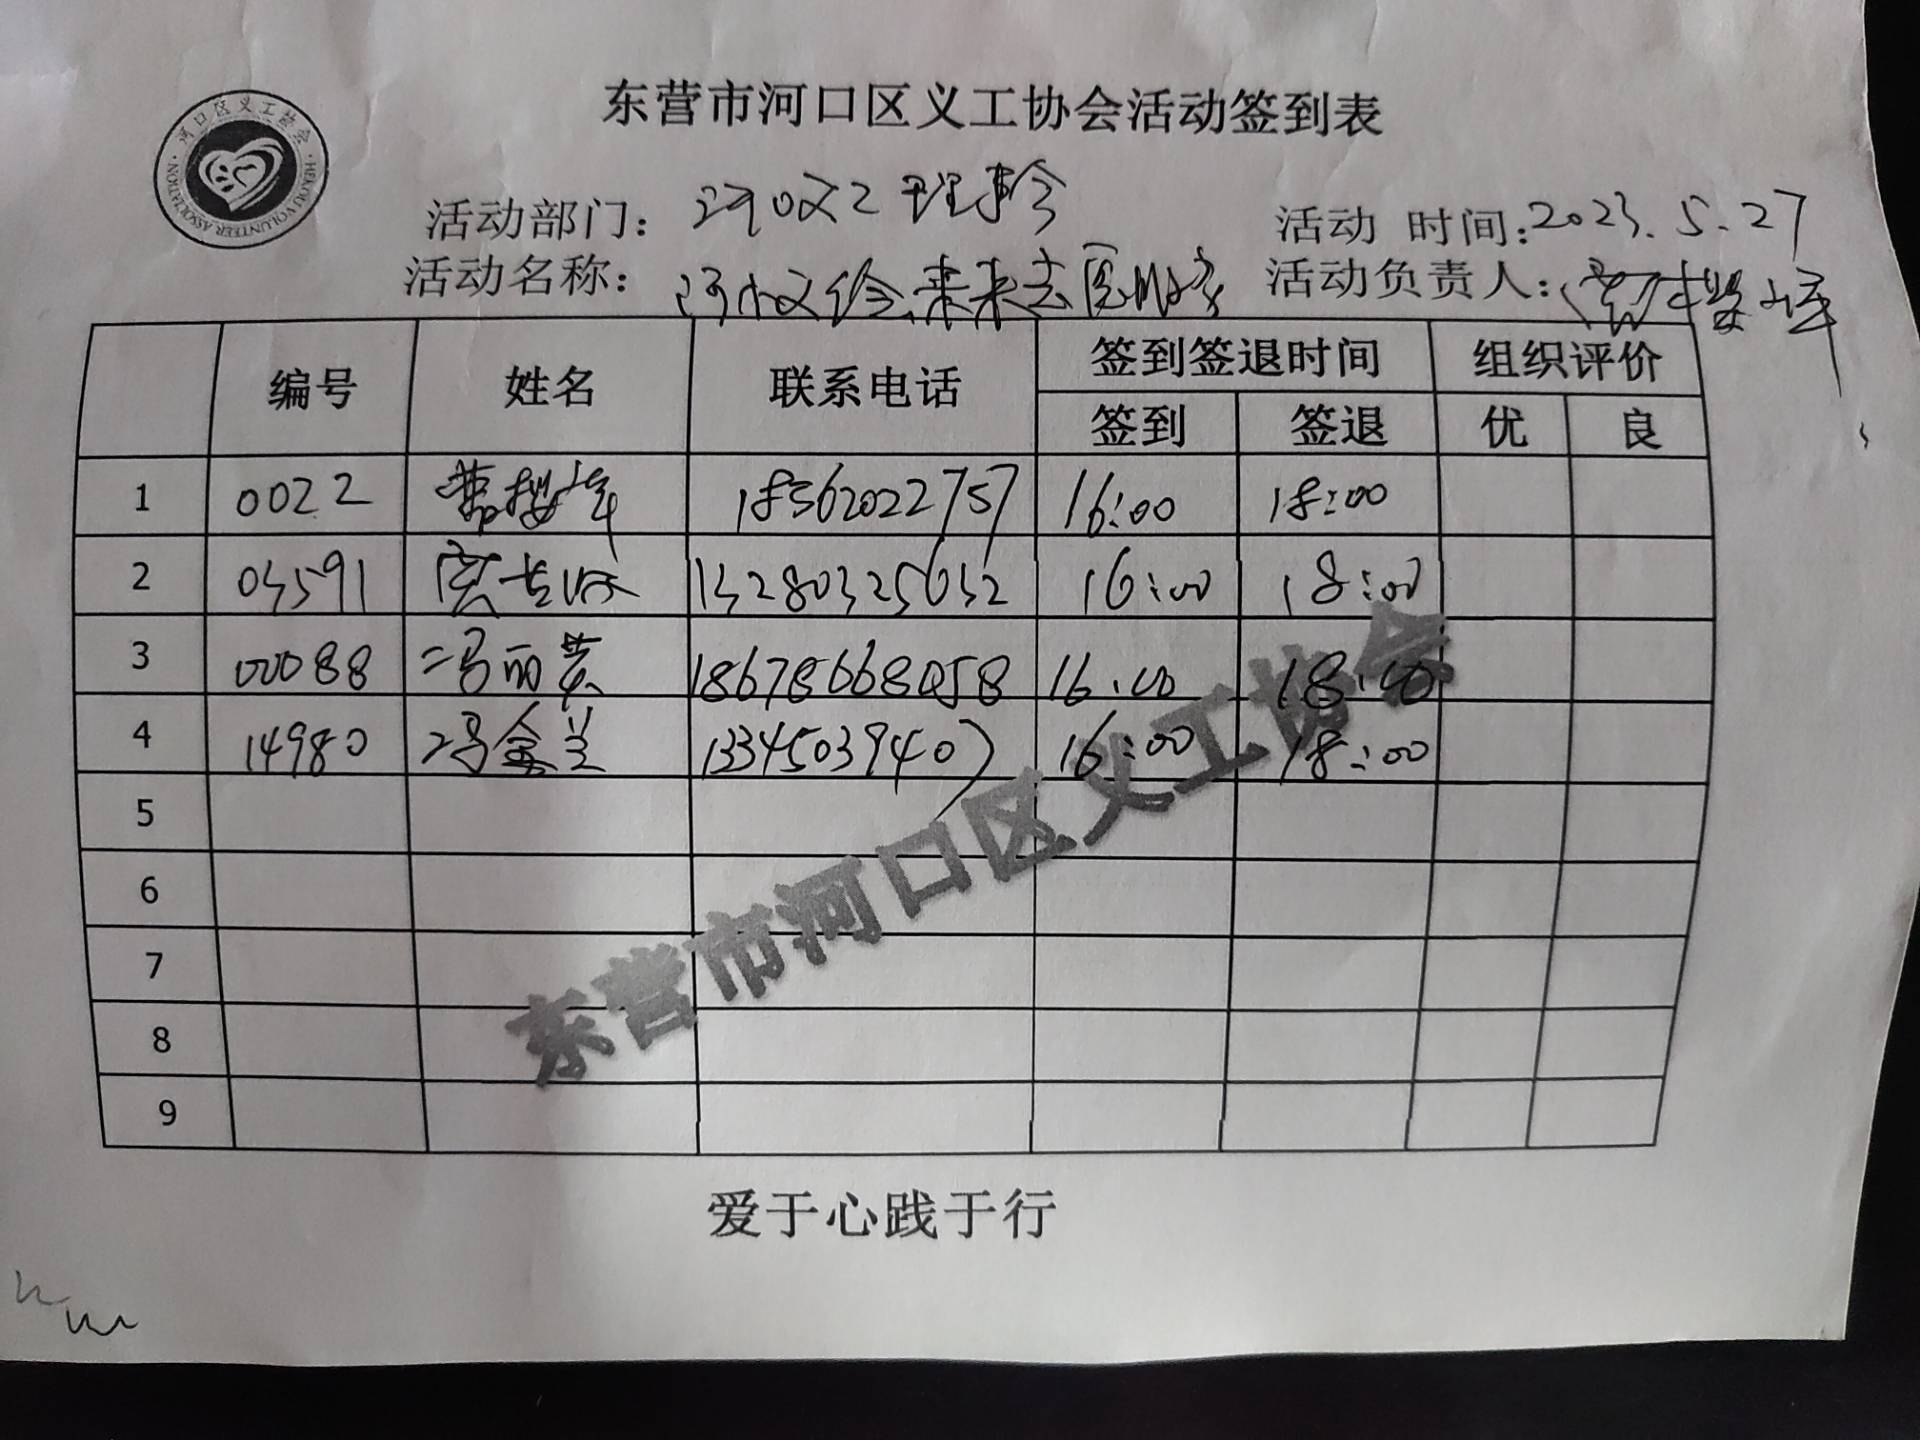 东营市河口区义工协会活动签到表
河口区义工协会
HEKOU VOLUNTEER ASSOCIATION
活动部门：
活动 时间：2023.5.27
活动名称：
活动负责人：
编号 姓名 联系电话 签到签退时间 组织评价
签到 签退 优 良
1 0022 18562022757 16:00 18:00
2 03591 13280325632 16:00 18:00
3 00088 冯丽英 18678668058 16:00 18:00
4 14980 冯金兰 13345039407 16:00 18:00
5
6
7
8
9
东营市河口区义工协会
爱于心践于行